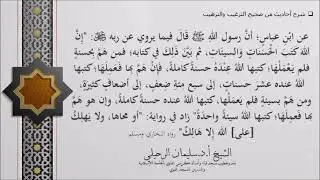 شرح أحاديث من صحيح الترغيب والترهيب
عن ابن عباس؛ أنَّ رسولَ الله ﷺ قالَ فيما يروي عن ربه ﷿: "إنَّ
الله كتبَ الحَسَناتِ والسيئاتِ، ثم بيَّن ذلكَ في كتابه؛ فمن همَّ بحسنةٍ
فلم يَعْمَلْها؛ كتبها اللهُ عندَهُ حسنةً كاملةً، فإن همَّ بها فعَمِلَها؛ كتبها
اللهُ عنده عشرَ حسناتٍ، إلى سبع مئةِ ضعفٍ، إلى أضعافٍ كثيرةٍ،
ومن همَّ بسيئةٍ فلم يَعْمَلْها، كتبها الله عنده حسنةً كاملةً، وإن هو همَّ
بها فعَمِلَها؛ كتبها اللهُ سيئةً واحدةً" زاد في رواية: "أو محاها، ولا يَهْلِكُ
[على] الله إلا هالِكٌ" رواه البخاري ومسلم
الشيخ أ.د. سليمان الرحيلي